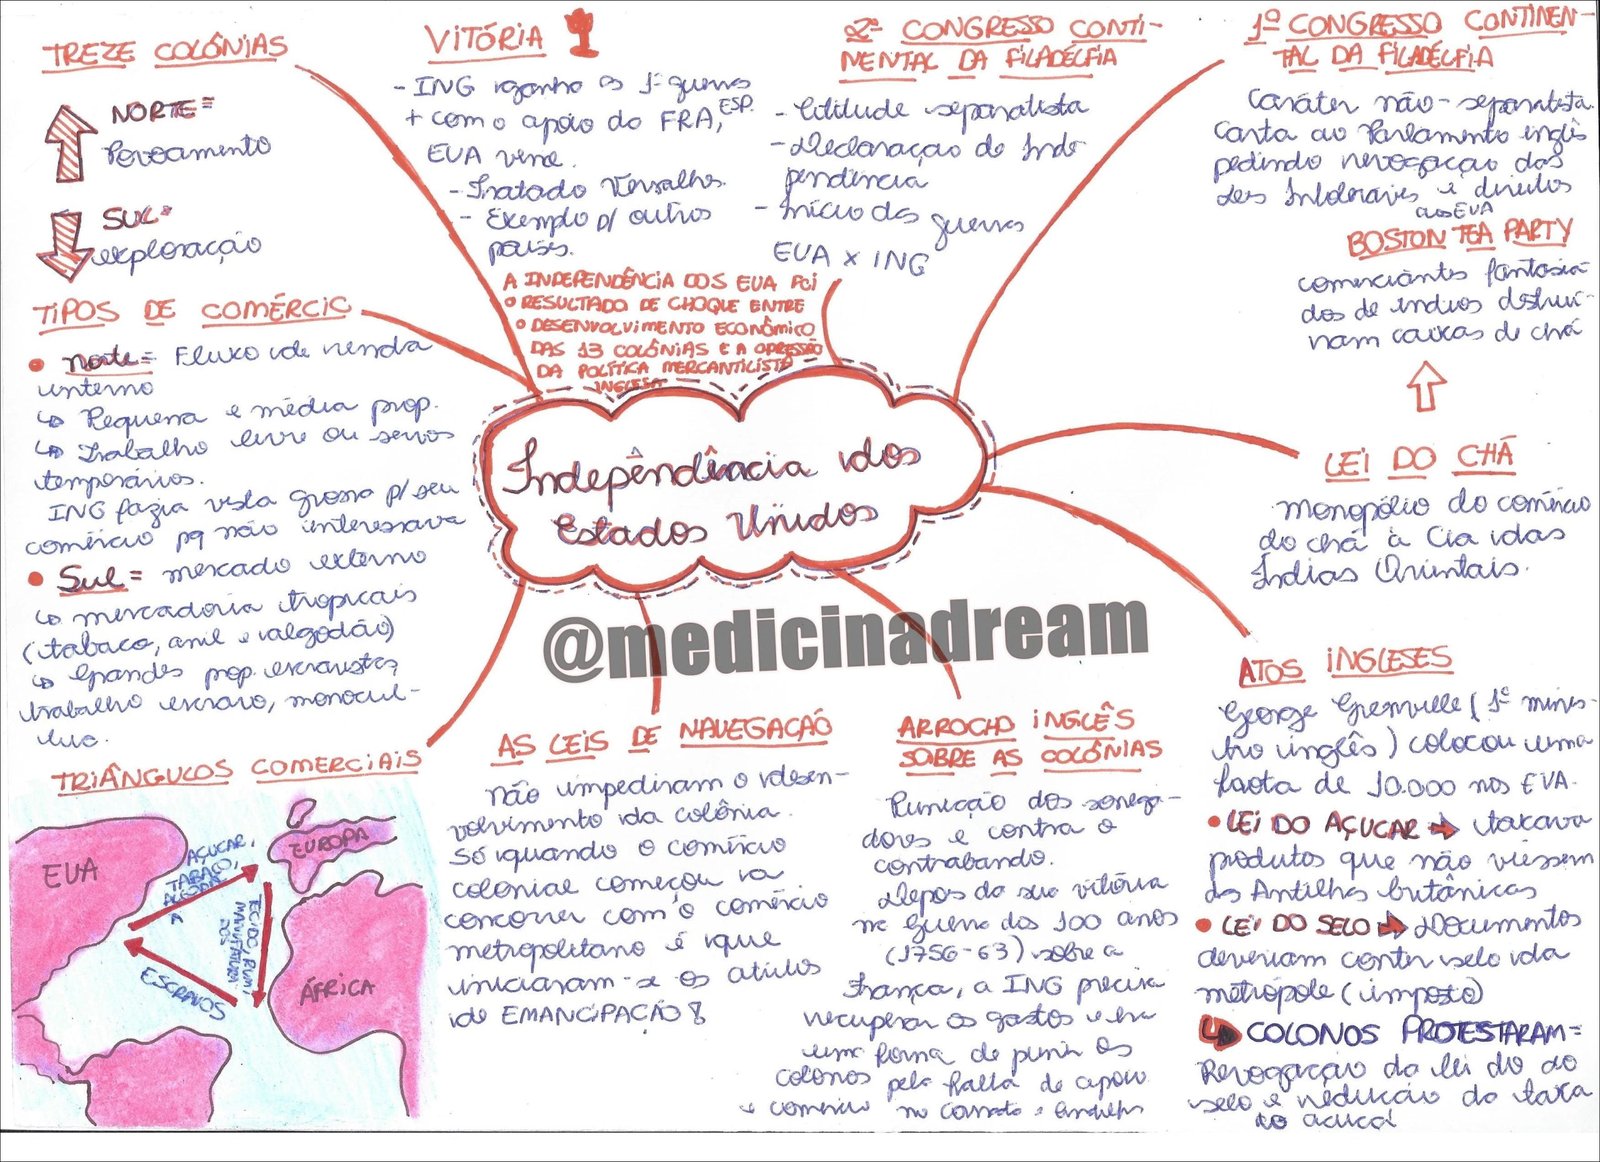 TREZE COLÔNIAS
NORTE =
Povoamento
SUL =
exploração
TIPOS DE COMÉRCIO
• Norte = Fluxo de venda
interno
↳ Pequena e média prop.
↳ Trabalho livre ou servos
temporários.
ING fazia vista grossa p/ seu
comércio pq não interessava
• Sul = mercado externo
↳ mercadoria tropicais
(tabaco, anil e algodão)
↳ Grandes prop. escravistas,
trabalho escravo, monocul-
tivo.
TRIÂNGULOS COMERCIAIS
EUA
EUROPA
ÁFRICA
AÇUCAR,
TABACO,
TECIDO, RUM,
MANUFATURA
DOS
ESCRAVOS
VITÓRIA
- ING ganha as 1ª guerras
+ com o apoio do FRA, ESP.
EUA vence.
- Tratado Versalhes.
- Exemplo p/ outros
países.
2º CONGRESSO CONTI-
NENTAL DA FILADÉLFIA
- Atitude separatista
- Declaração de Inde-
pendência
- Início das guerras
EUA x ING
1º CONGRESSO CONTINEN-
TAL DA FILADÉLFIA
Caráter não-separatista.
Carta ao Parlamento inglês
pedindo revogação das
Leis Intoleráveis e direitos
aos EUA
BOSTON TEA PARTY
comerciantes fantasia-
dos de índios destruí-
ram caixas de chá
LEI DO CHÁ
monopólio do comércio
do chá à Cia das
Índias Orientais.
A INDEPENDÊNCIA DOS EUA FOI
O RESULTADO DE CHOQUE ENTRE
O DESENVOLVIMENTO ECONÔMICO
DAS 13 COLÔNIAS E A OPRESSÃO
DA POLÍTICA MERCANTILISTA
INGLESA
Independência dos
Estados Unidos
@medicinadream
AS LEIS DE NAVEGAÇÃO
Não impediram o desen-
volvimento da colônia.
Só quando o comércio
colonial começou a
concorrer com o comércio
metropolitano é que
iniciaram-se os
de EMANCIPAÇÃO
ARROCHO INGLÊS
SOBRE AS COLÔNIAS
Punição dos sonega-
dores e contra o
contrabando.
Depois da sua vitória
na Guerra dos 100 anos
(1756-63) sobre a
França, a ING precisa
recuperar os gastos e era
uma forma de punir os
colonos pela falta de apoio
e comércio no Canadá e Antilhas
ATOS INGLESES
George Grenville (1º minis-
tro inglês) colocou uma
frota de 10.000 nos EUA.
• LEI DO AÇUCAR ➔ taxava
produtos que não viessem
das Antilhas britânicas
• LEI DO SELO ➔ Documentos
deveriam conter selo da
metrópole (imposto)
↳ COLONOS PROTESTARAM =
Revogação da lei do do
selo e redução da taxa
do açucar